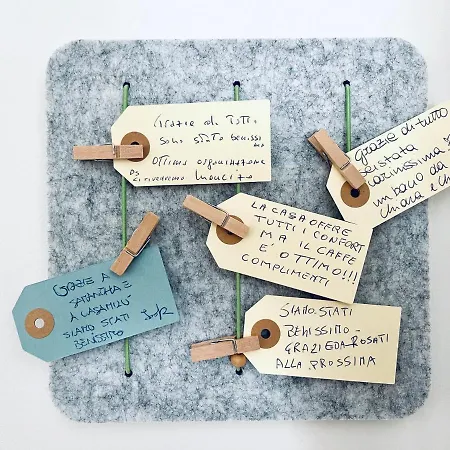 Grazie di Tutto
Sono stato benissi
mo
OTTIMA ORGANIZZAZIONE
PS
CI RIVEDREMO
Grazie di tutto
sei stata
carinissima
un bacio da
Chiara e
LA CASA OFFRE
TUTTI I CONFORT
MA IL CAFFE
E' OTTIMO!!!
COMPLIMENTI
GRAZIE A
SAMANTHA E
A CASAMILÙ
SIAMO STATI
BENISSIMO
SIAMO STATI
BENISSIMO -
GRAZIE DA ROSATI
ALLA PROSSIMA